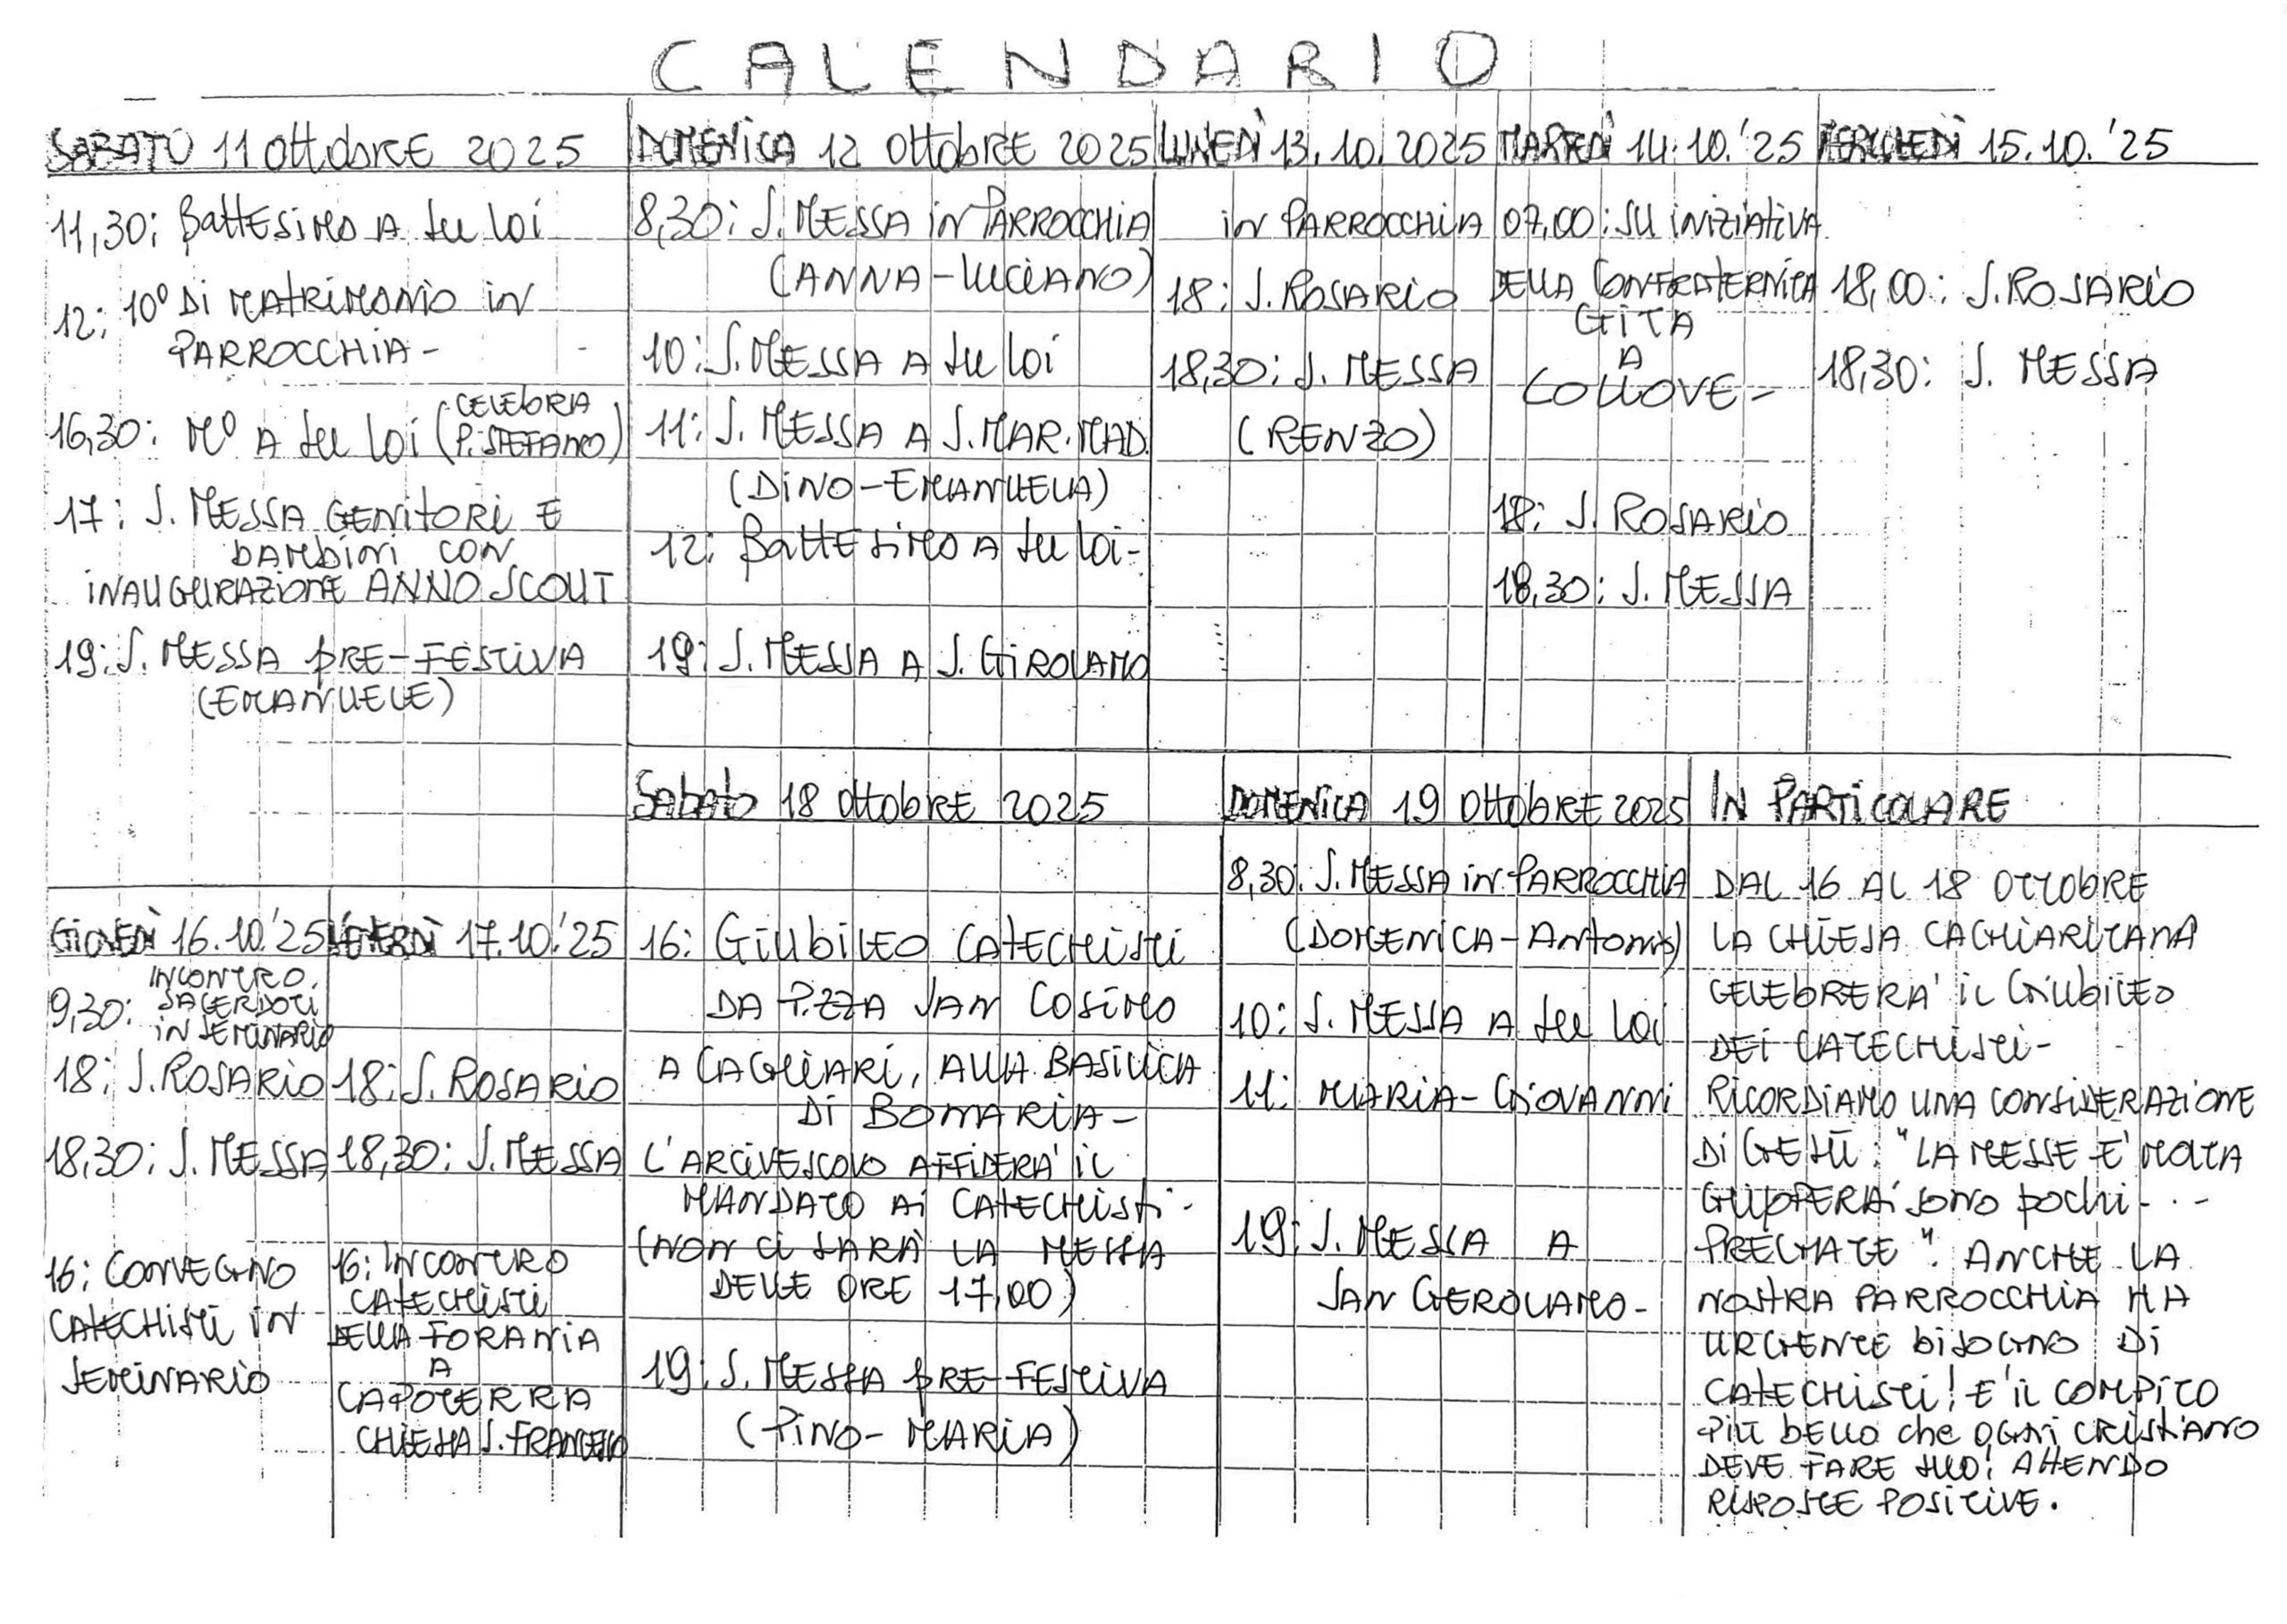 CALENDARIO
SABATO 11 OttobRE 2025
11,30: BattESiMO A Su Loi
12: 10º Di MATRiMONiO iN
PARROCCHiA-
16,30: Mº A Su Loi (CELEbRA
P. STEFANO)
17: S. MESSA GENitORi E
bAMbiNi CON
iNAUGURAZiONE ANNO SCOUT
19: S. MESSA pRE-FESTiVA
(EMANUELE)
DOMENiCA 12 OttobRE 2025
8,30: S. MESSA iN PARROCCHiA
(ANNA-LUCiANO)
10: S. MESSA A Su Loi
11: S. MESSA A S. MAR. MAD.
(DiNO-EMANUELA)
12: BattESiMO A Su Loi-
19: S. MESSA A S. GiROLAMO
LUNEDÌ 13.10.2025
iN PARROCCHiA
18: S. ROSARiO
18,30: S. MESSA
(RENZO)
MARTEDÌ 14.10.'25
07,00: SU iNiZiATiVA
DELLA CONFRATERNiTA
GiTA
A
COLLOVE-
18: S. ROSARiO
18,30: S. MESSA
MERCOLEDÌ 15.10.'25
18,00: S. ROSARiO
18,30: S. MESSA
GiOVEDÌ 16.10.'25
9,30: iNCONTRO
SACERDOTi
iN SEMiNARiO
18: S. ROSARiO
18,30: S. MESSA
16: CONVEGNO
CATECHiSTi iN
SEMiNARiO
VENERDÌ 17.10.'25
18: S. ROSARiO
18,30: S. MESSA
16: INCONTRO
CATECHiSTi
DELLA FORANiA
A
CAPOTERRA
CHiESA S. FRANCESCO
Sabato 18 OttobRE 2025
16: GiUbiLEO CATECHiSTi
DA P.ZZA SAN COSiMO
A CAGLiARi, ALLA BASiLiCA
Di BONARiA-
L'ARCiVESCOVO AFFiDERA' iL
MANDATO Ai CATECHiSti-
(NON Ci SARÀ LA MESSA
DELLE ORE 17,00)
19: S. MESSA pRE-FESTiVA
(PiNO-MARiA)
DOMENiCA 19 OttobRE 2025
8,30: S. MESSA iN PARROCCHiA
(DOMENiCA-ANtONiO)
10: S. MESSA A Su Loi
11: MARiA-GiOVANNi
19: S. MESSA A
SAN GEROLAMO-
IN PARTiCOLARE
DAL 16 AL 18 OTTObRE
LA CHiESA CAGLiARiTANA
CELEbRERA' iL GiUbiLEO
DEi CATECHiSTi-
RiCORDiAMO UNA CONSiDERAZiONE
Di GESÙ: "LA MESSE E' MOLTA
GLi OPERAi SONO pochi...
PREGATE". ANCHE LA
NOSTRA PARROCCHiA HA
URGENTE biSOGNO Di
CATECHiSTi! E' iL COMPiTO
PiÙ bELLO che OGNi CRiStiANO
DEVE FARE SUO! ATTENDO
RiSPOSTE POSiTiVE.